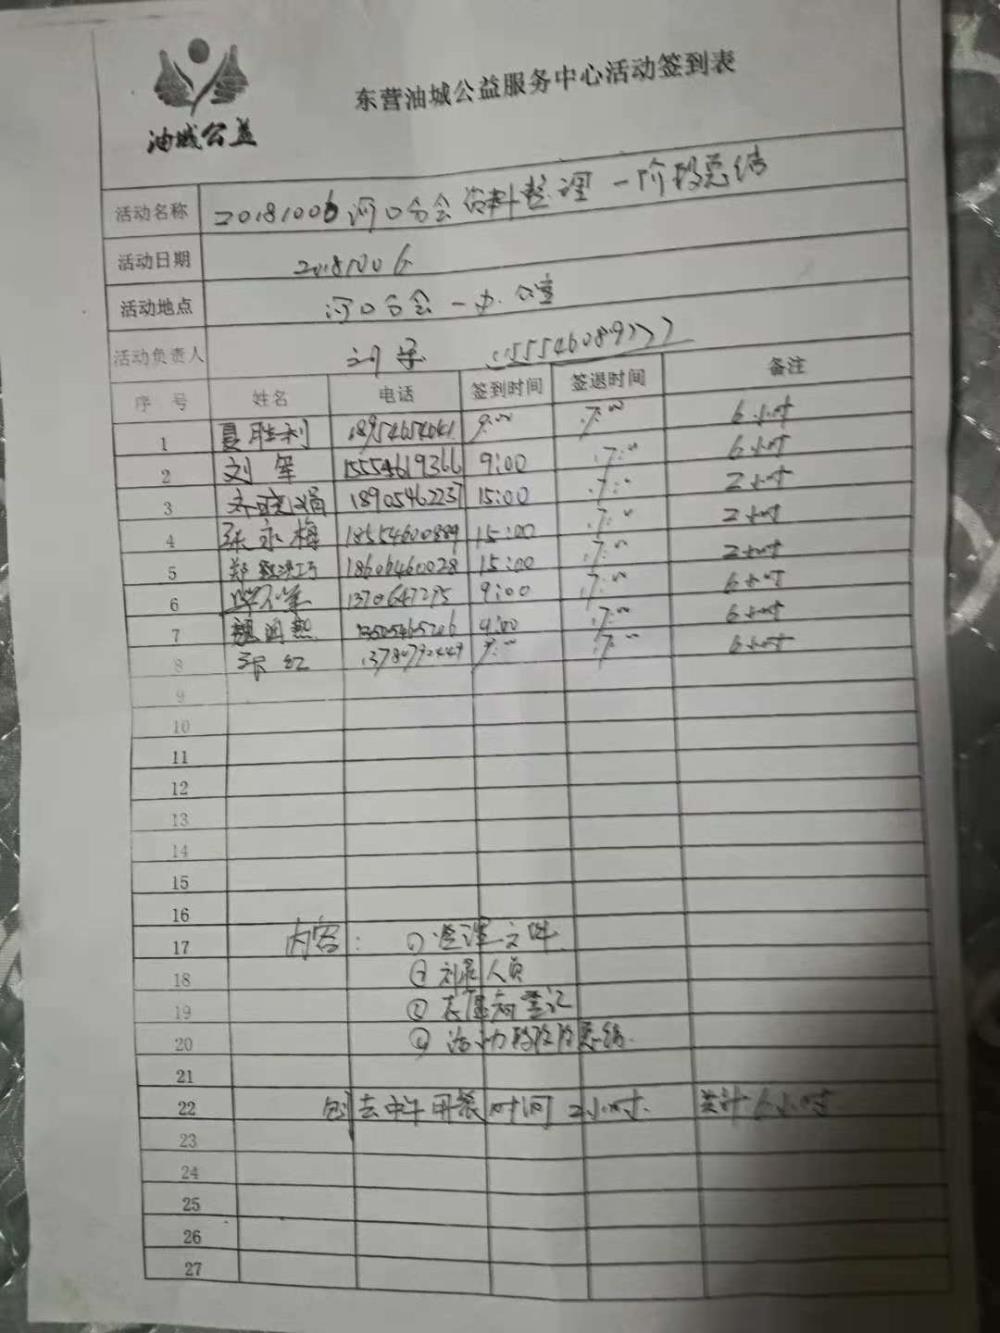 油城公益
东营油城公益服务中心活动签到表
活动名称 20181006河口分会资料整理一阶段总结
活动日期 20181006
活动地点 河口分会一办公室
活动负责人 刘
序号 姓名 电话 签到时间 签退时间 备注
1 夏胜利 9:00 17:00 6小时
2 刘军 15554619366 9:00 17:00 6小时
3 18905462237 15:00 17:00 2小时
4 张永梅 18554600889 15:00 17:00 2小时
5 郑 18606460028 15:00 17:00 2小时
6 9:00 17:00 6小时
7 魏 9:00 17:00 6小时
8 红 9:00 17:00 6小时
9
10
11
12
13
14
15
16
17 内容: ① 整理文件
18 ② 人员
19 ③ 志愿者登记
20 ④ 活动阶段总结.
21
22 去中午用餐时间2小时. 共计6小时
23
24
25
26
27